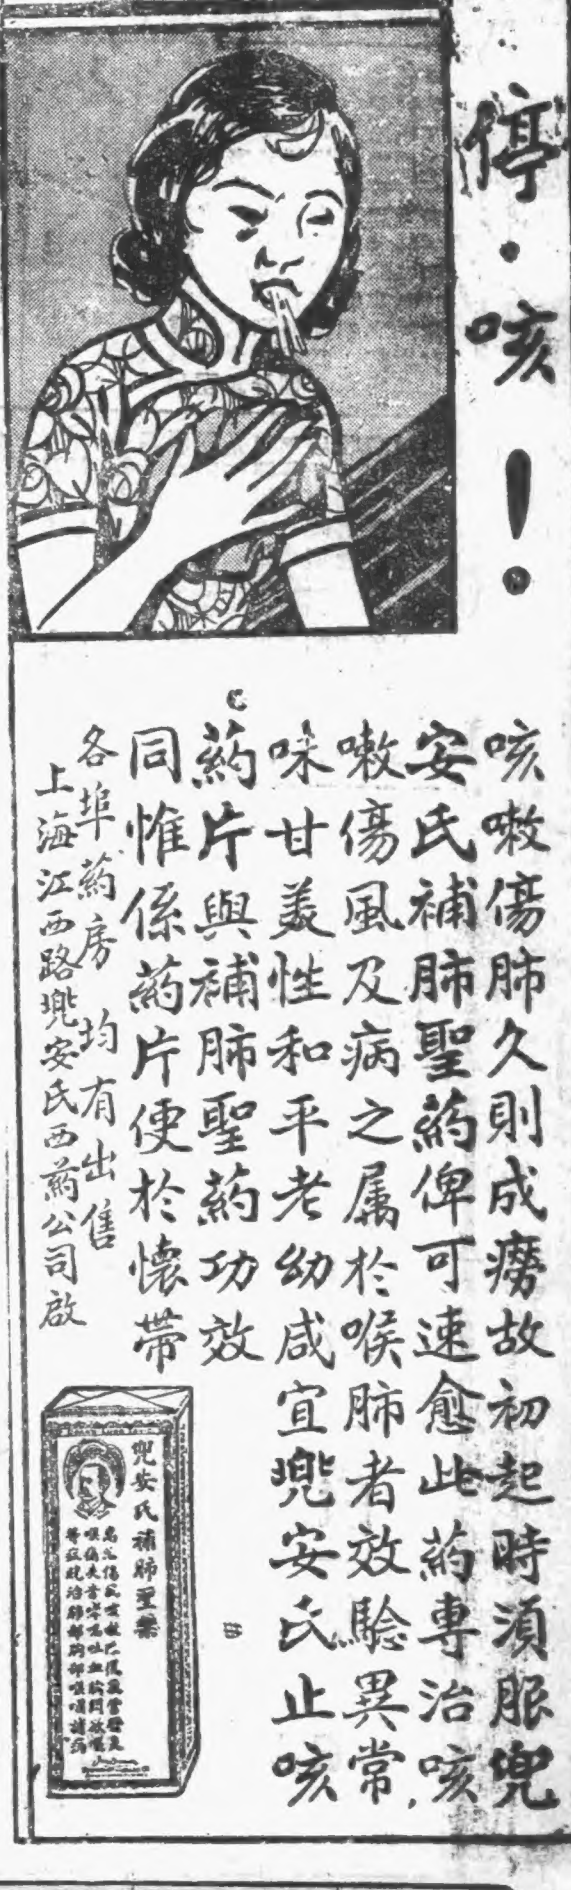 停·咳!
咳嗽傷肺久則成癆故初起時須服兜
安氏補肺聖藥俾可速愈此藥專治咳
嗽傷風及病之属於喉肺者效驗異常
味甘美性和平老幼咸宜兜安氏止咳
藥片與補肺聖藥功效
同惟係藥片便於懷帶
各埠藥房均有出售
上海江西路兜安氏西藥公司啟
兜安氏補肺聖藥